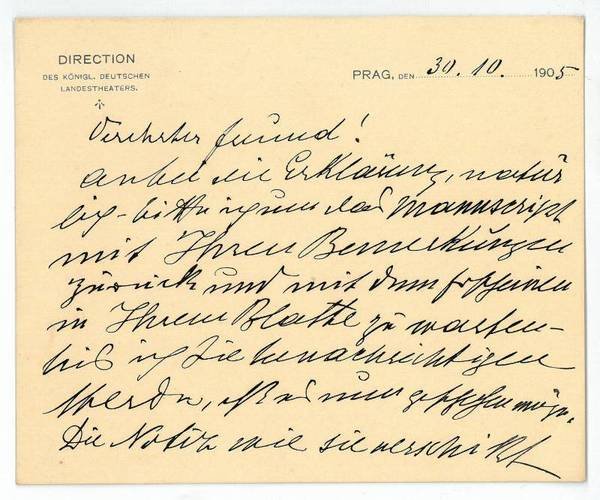 DIRECTION
DES KÖNIGL. DEUTSCHEN
LANDESTHEATERS.
PRAG, DEN 30. 10. 1905
Verehrter Freund!
anbei die Erklärung, natür
lich - bitte ich um das Manuscript
mit Ihren Bemerkungen
zurück und mit dem Erscheinen
in Ihrem Blatte zu warten -
bis ich Sie benachrichtigen
werde, es nun geschehen möge.
Die Notiz wie sie verschickt